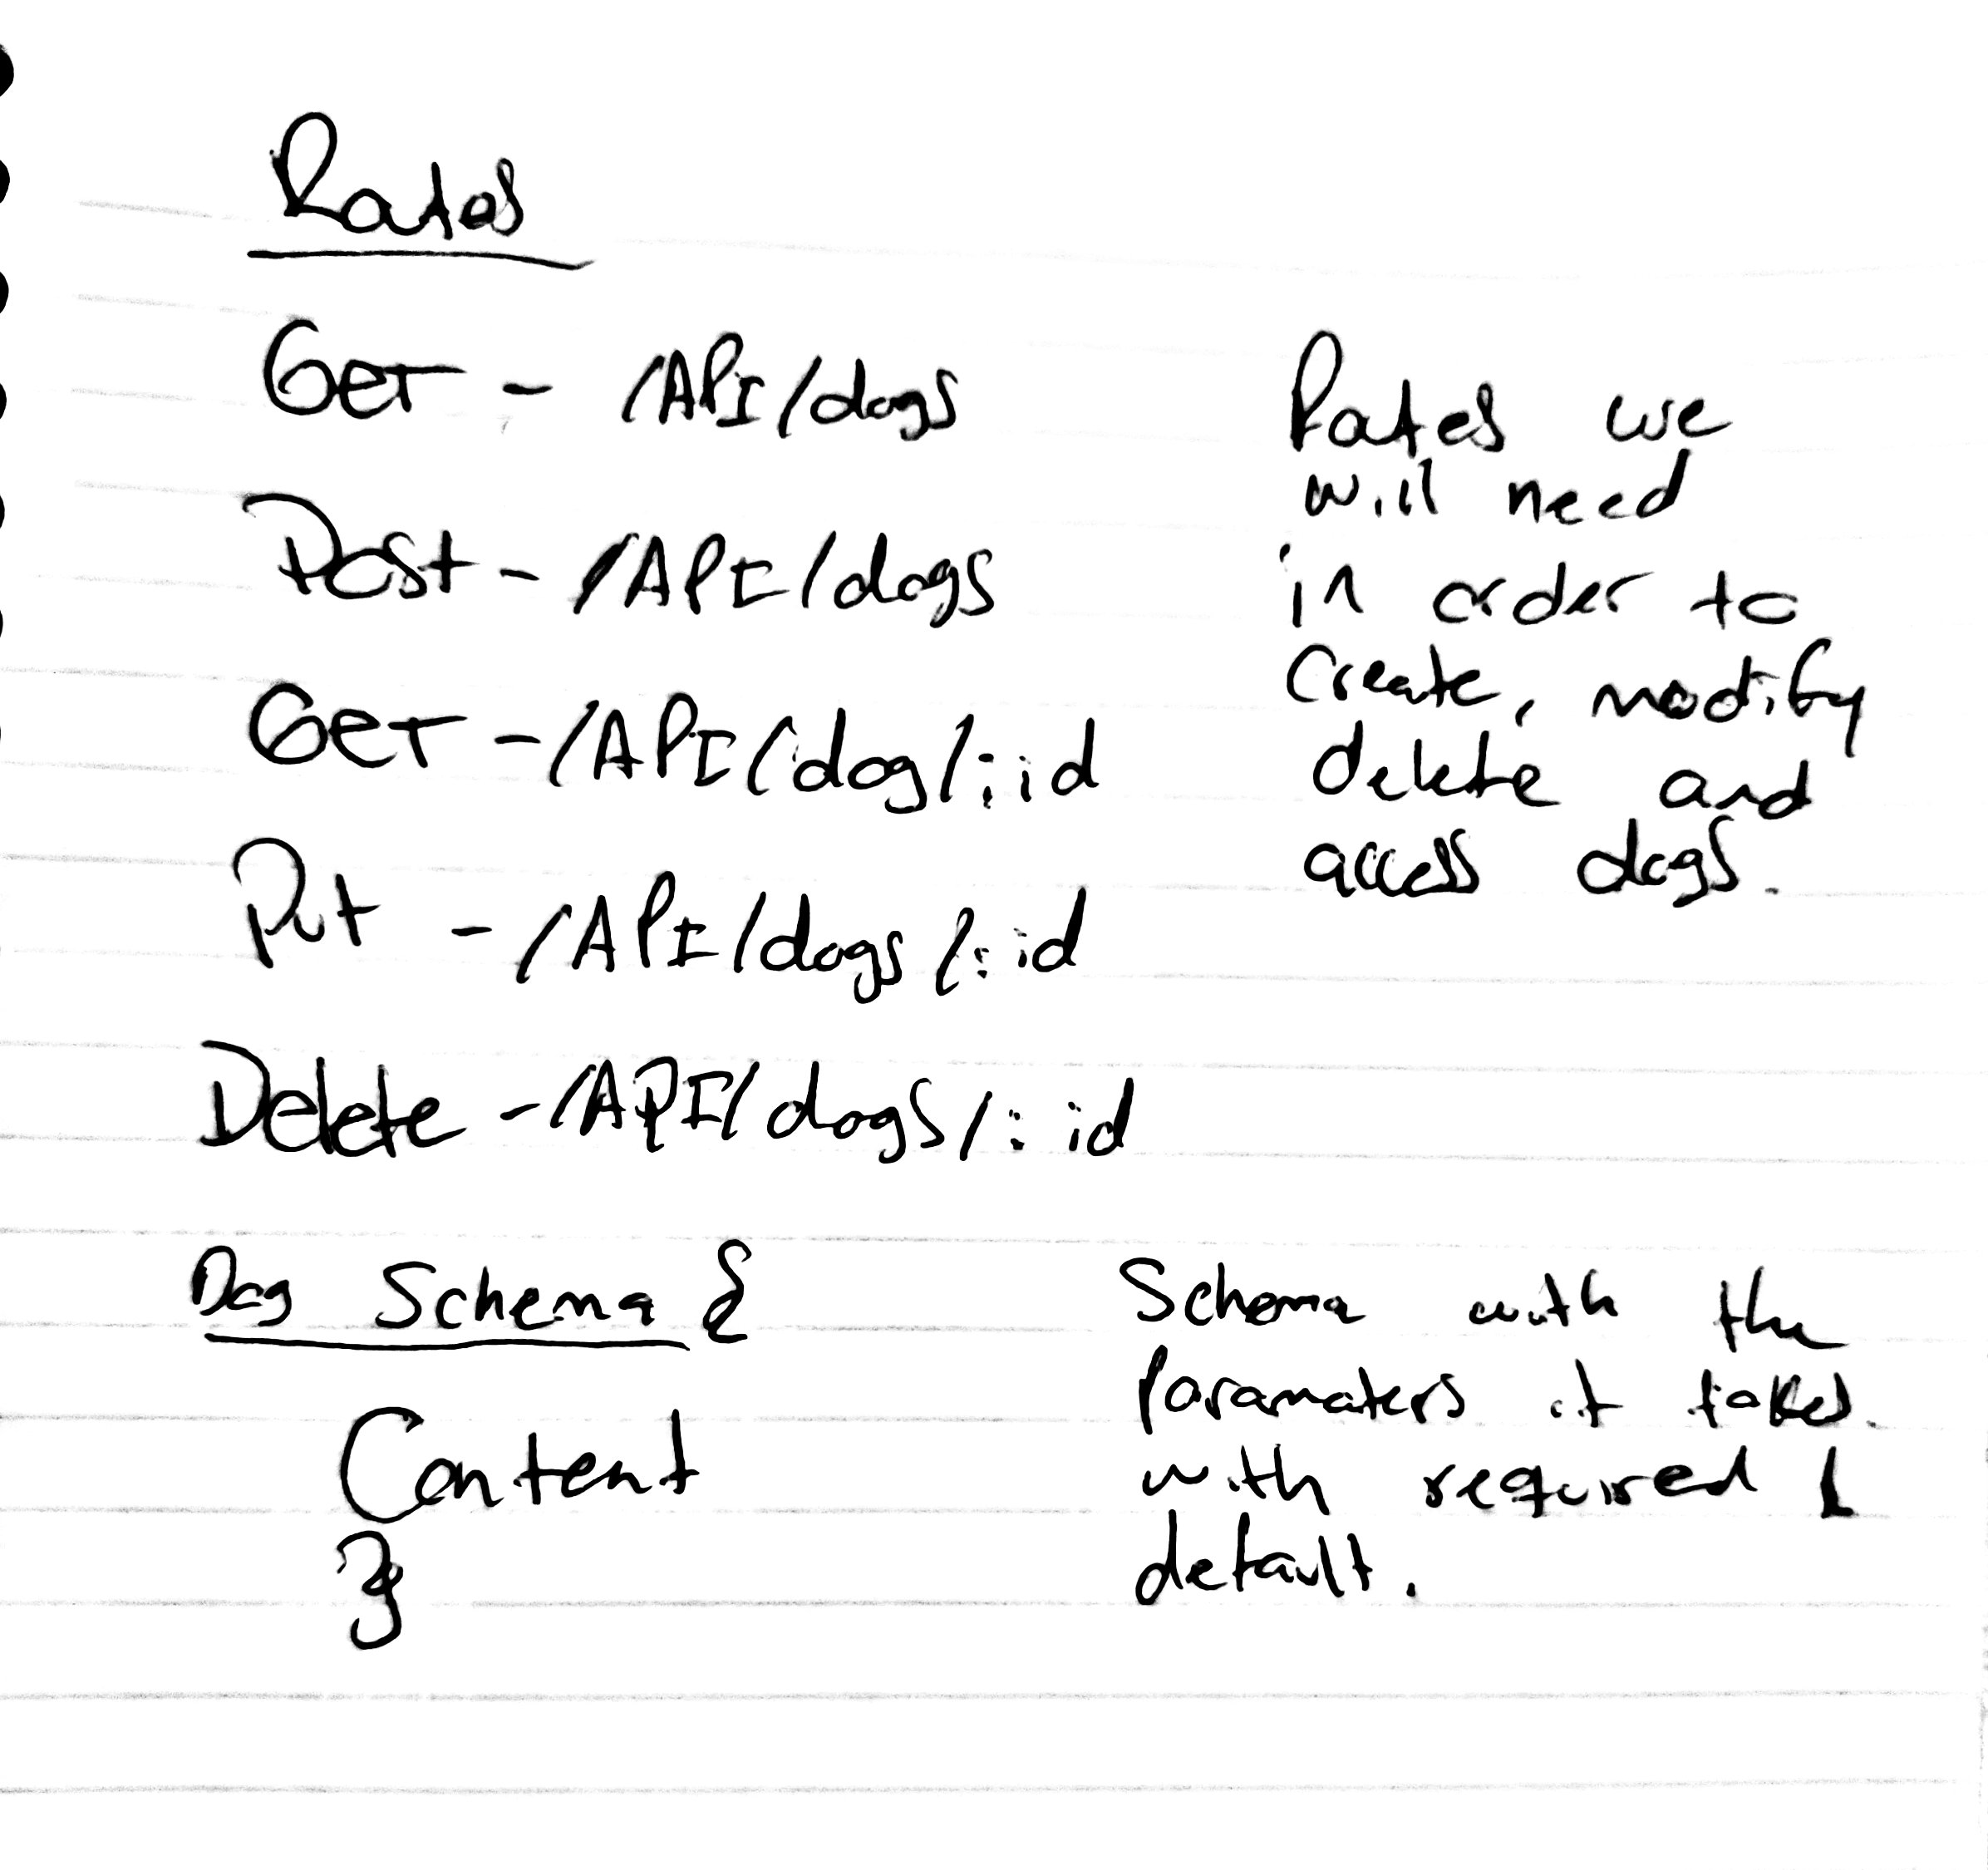 Rates
GET - /API/dogs
Post - /API/dogs
GET - /API/dog/:id
Put - /API/dogs/:id
Delete - /API/dogs/: id
Rates we
will need
in order to
Create, modify
delete and
access dogs.
Dog Schema {
Content
}
Schema with the
Paramaters it takes.
with required &
default.